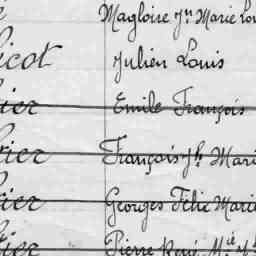 Magloire Jn Marie Lou
icot Julien Louis
ier Emile François
ier François Jh Mari
ier Georges Félix Marie
ier Pierre René Mie